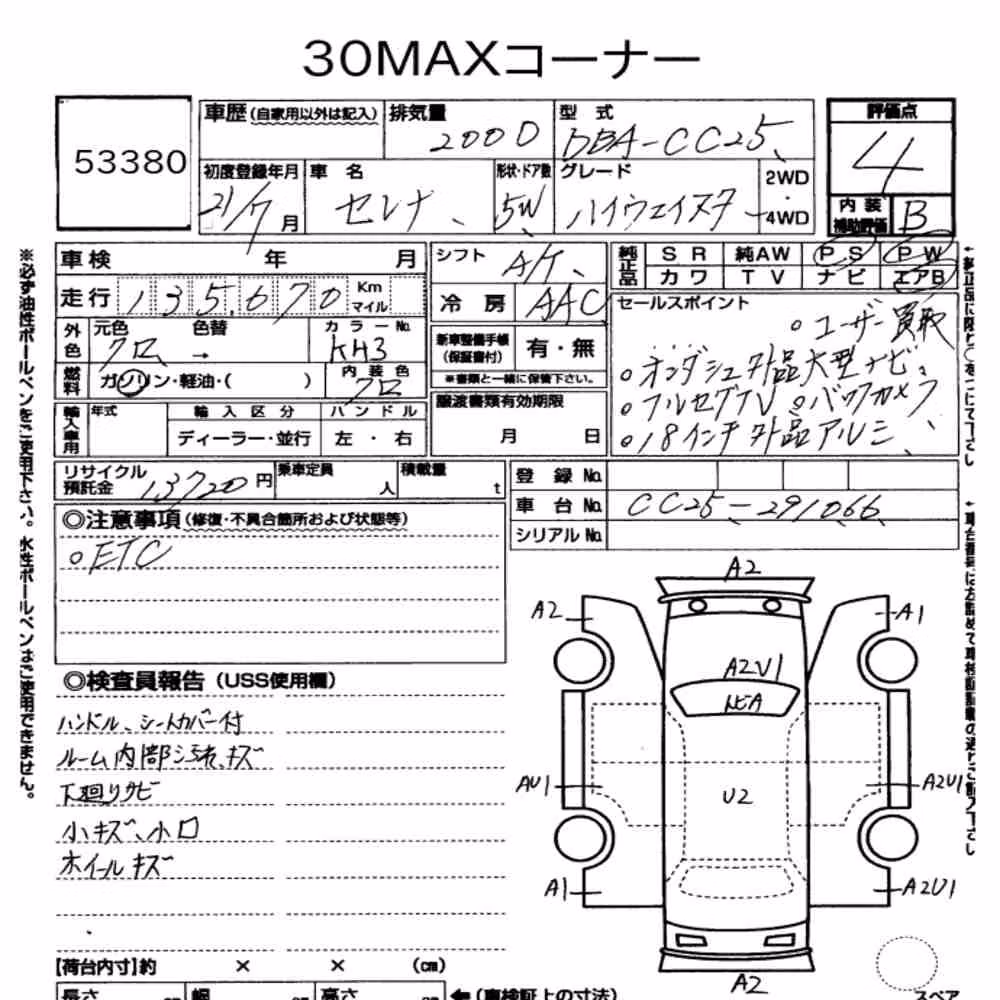 30MAXコーナー
53380
車歴(自家用以外は記入) 排気量 2000 型式 DBA-CC25
初度登録年月 21/7月 車名 セレナ 形状・ドア数 5W グレード ハイウェイスター 2WD・4WD
評価点 4
内装補助評価 B
車検 年 月
走行 135,670 Km マイル
シフト A/T
冷房 AAC
純正品 SR 純AW PS PW
カワ TV ナビ エアB
外色 元色 クロ 色替 → カラーNo. KH3
燃料 ガソリン・軽油・( ) 内装色 クロ
新車整備手帳(保証書付) 有・無
※書類と一緒に保管下さい。
輸入車用 年式 輸入区分 ハンドル
ディーラー・並行 左・右
譲渡書類有効期限
月 日
セールスポイント
○ユーザー買取
○オンダッシュ外品大型ナビ
○フルセグTV ○バックカメラ
○18インチ外品アルミ
リサイクル預託金 13720円 乗車定員 人 積載量 t
登録No.
車台No. CC25-291066
シリアルNo.
◎注意事項(修復・不具合箇所および状態等)
○ETC
◎検査員報告(USS使用欄)
ハンドル、シートカバー付
ルーム内部汚れ、キズ
下廻りサビ
小キズ、小凹
ホイールキズ
【荷台内寸】約 × × (cm)
長さ cm 幅 cm 高さ cm ←(車検証上の寸法)
A2
A2 A1
A2U1
トビA
AU1 U2 A2U1
A1 A2U1
A2
スペア
※必ず油性ボールペンをご使用下さい。水性ボールペンはご使用できません。
←純正品に限り○をつけて下さい
←車台番号は左詰めで車検証記載の通りご記入下さい